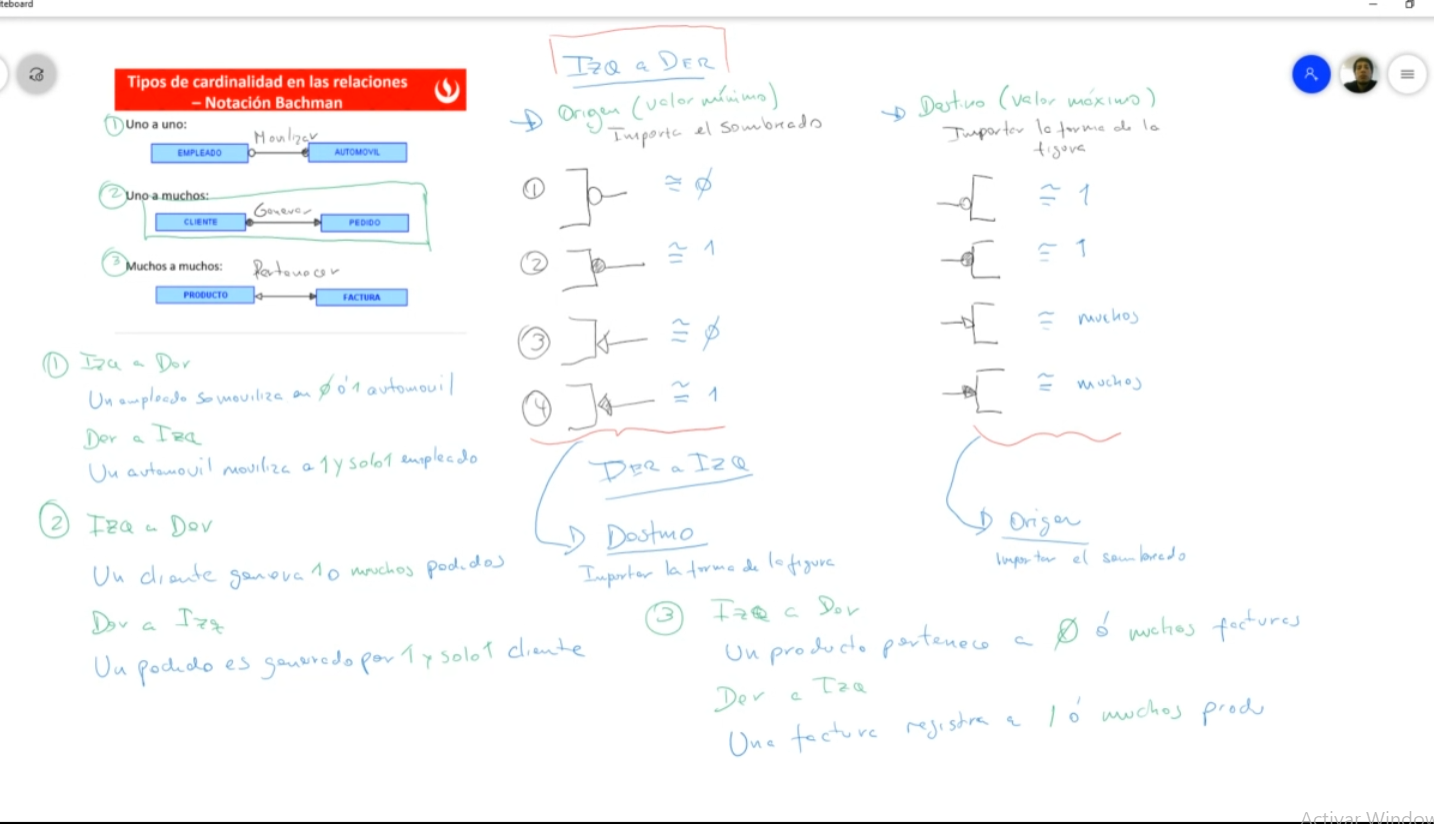 teboard
Tipos de cardinalidad en las relaciones
– Notación Bachman
① Uno a uno:
Movilizar
EMPLEADO
AUTOMOVIL
② Uno a muchos:
Generar
CLIENTE
PEDIDO
③ Muchos a muchos:
Pertenecer
PRODUCTO
FACTURA
① Izq a Der
Un empleado se moviliza en ∅ ó 1 automovil
Der a Izq
Un automovil moviliza a 1 y solo 1 empleado
② Izq a Der
Un cliente genera 1 o muchos pedidos
Der a Izq
Un pedido es generado por 1 y solo 1 cliente
IZQ a DER
Origen (valor mínimo)
Importa el sombreado
① ≅ ∅
② ≅ 1
③ ≅ ∅
④ ≅ 1
DER a IZQ
Destino
Importar la forma de la figura
Destino (valor máximo)
Importar la forma de la
figura
≅ 1
≅ 1
≅ muchos
≅ muchos
Origen
Importar el sombreado
③ Izq a Der
Un producto pertenece a ∅ ó muchas facturas
Der a Izq
Una factura registra a 1 ó muchos produ
Activar Window